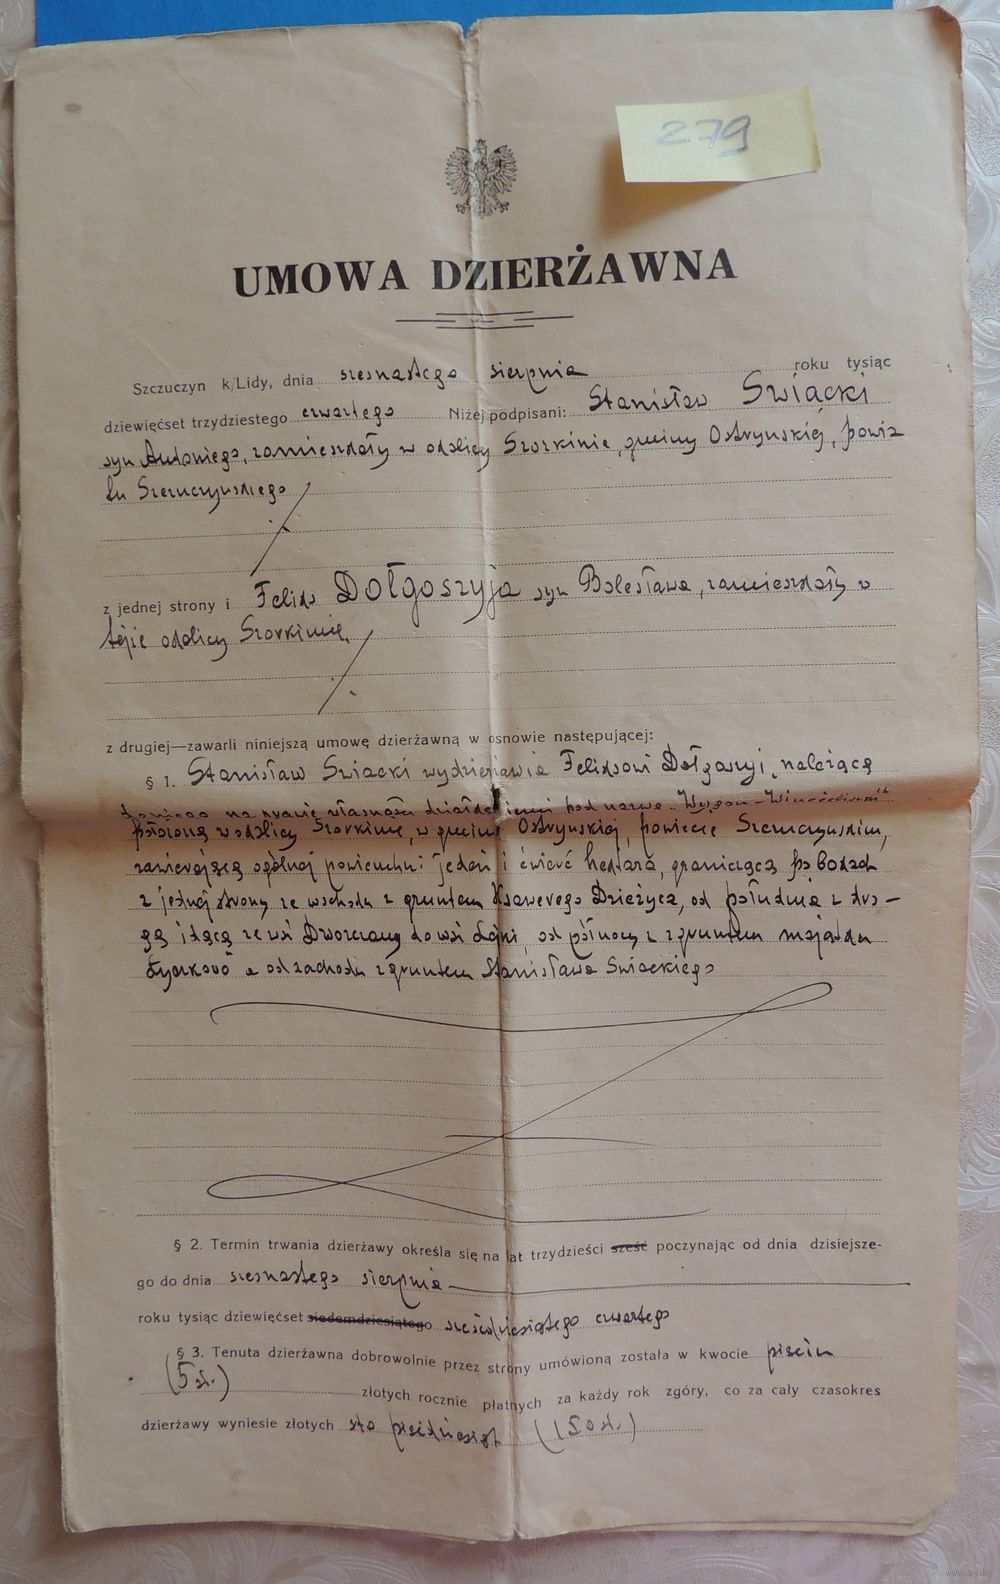 279
UMOWA DZIERŻAWNA
Szczuczyn k/Lidy, dnia szesnastego sierpnia roku tysiąc
dziewięćset trzydziestego czwartego Niżej podpisani: Stanisław Swiacki
syn Antoniego, zamieszkały w okolicy Szorkinie, gminy Ostryńskiej, powia
tu Szczuczyńskiego
z jednej strony i Feliks Dołgoszyja syn Bolesława, zamieszkały w
tejże okolicy Szorkinie,
z drugiej—zawarli niniejszą umowę dzierżawną w osnowie następującej:
§ 1. Stanisław Swiacki wydzierżawia Feliksowi należącą
na prawie własności działkę ziemi pod nazwą
położoną w okolicy Szorkinie, w gminie Ostryńskiej, powiecie Szczuczyńskim,
zawierającą ogólnej powierzchni jeden i ćwierć hektara, graniczącą po bokach
z jednej strony ze wschodu z gruntem Ksawerego od południa z dro-
gą idącą ze wsi do wsi od północy z gruntem majątku
a od zachodu z gruntem Stanisława Swiackiego
§ 2. Termin trwania dzierżawy określa się na lat trzydzieści sześć poczynając od dnia dzisiejsze-
go do dnia szesnastego sierpnia
roku tysiąc dziewięćset siedemdziesiątego sześćdziesiątego czwartego
§ 3. Tenuta dzierżawna dobrowolnie przez strony umówioną została w kwocie pięciu
(5 zł.) złotych rocznie płatnych za każdy rok zgóry, co za cały czasokres
dzierżawy wyniesie złotych sto pięćdziesiąt (150 zł.)